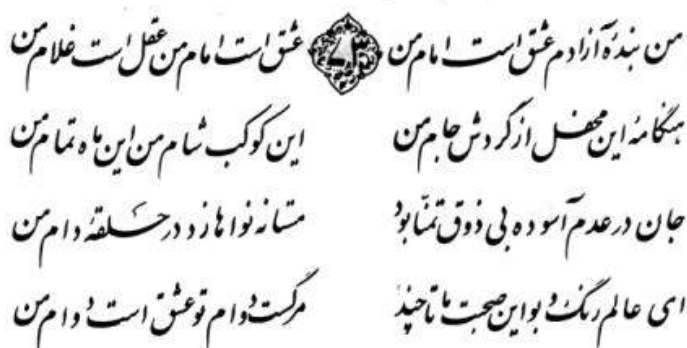 من بندهٔ آزادم عشق است امام من ۷۳ عشق است امام من عقل است غلام من
هنگامهٔ این محفل از گردش جام من این کوکب شام من این ماه تمام من
جان در عدم آسوده بی ذوق تمنّا بود مستانه نواها زد در حلقهٔ دام من
ای عالم رنگ و بو این صحبت ما تا چند مرگست دوام تو عشق است دوام من